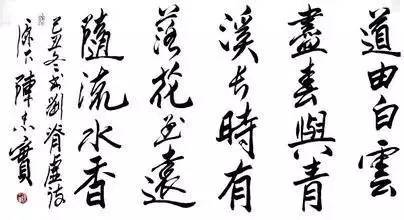 道由白雲
盡春與青
溪長時有
落花至遠
隨流水香
己丑冬書劉脊虛詩
陳寶